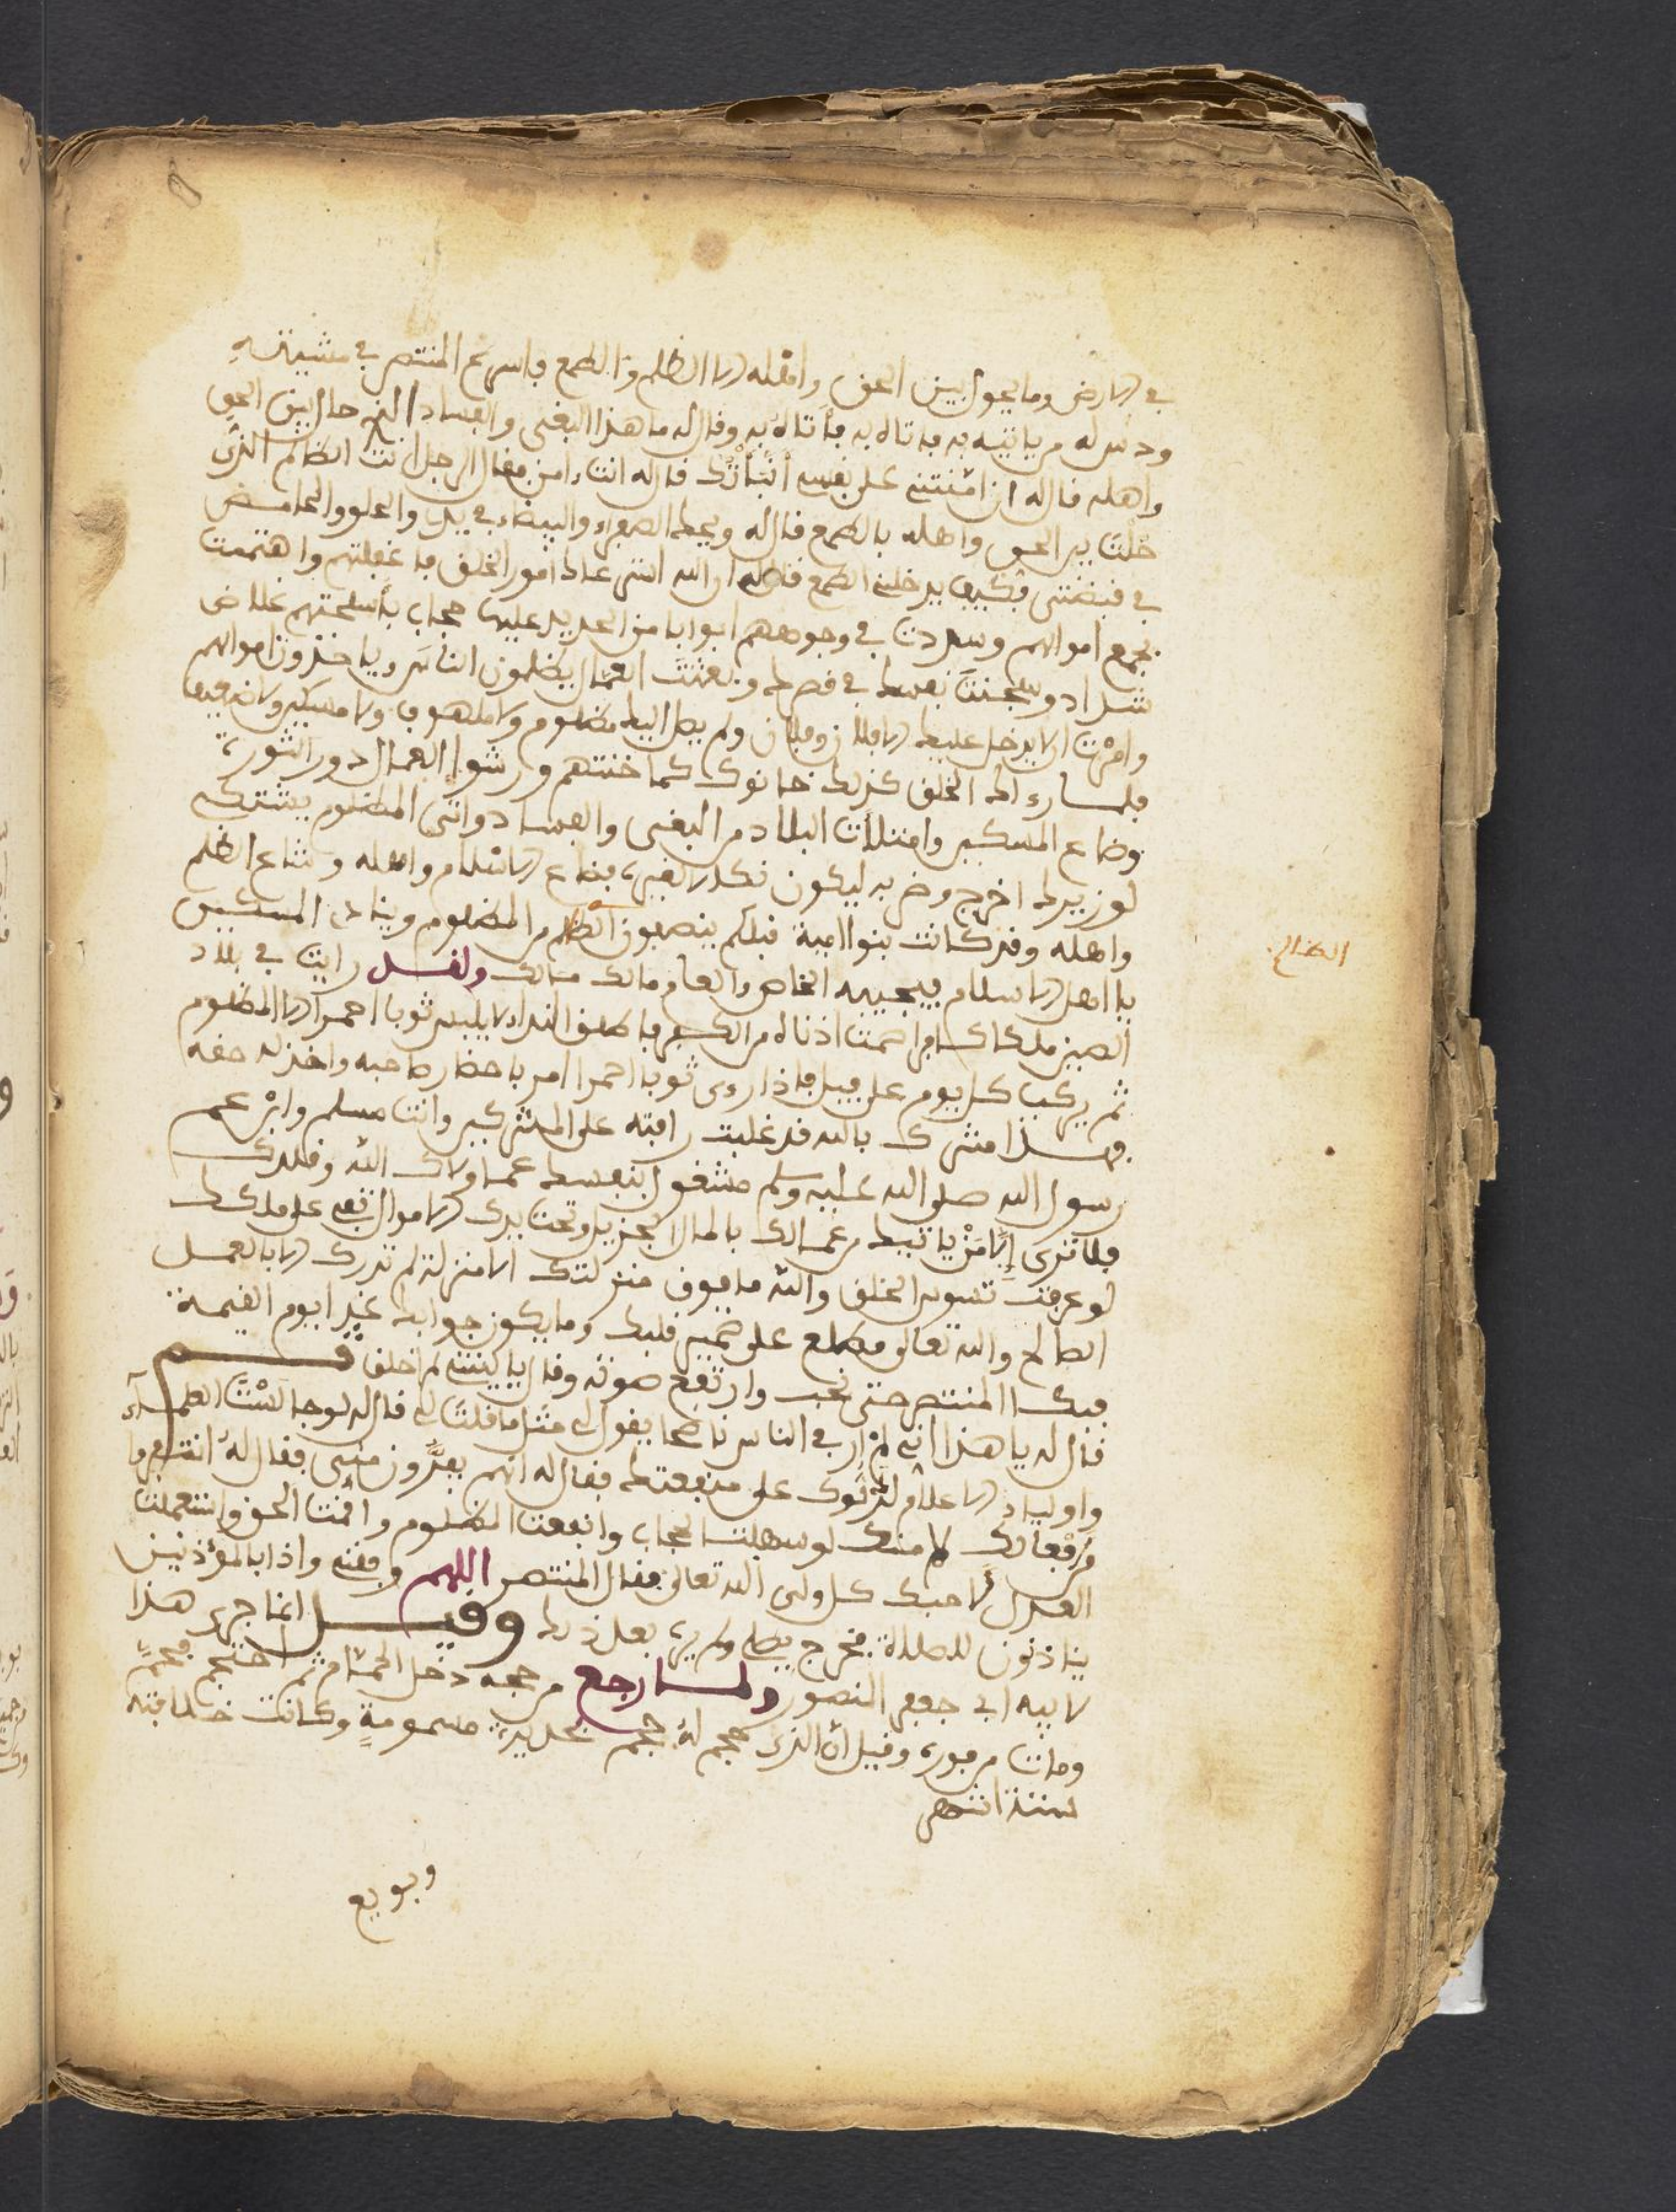 في الارض وما يحول بين الحق واهله الا الظلم والطمع فاسرع المنتصر في مشيته
ودس له من ياتيه به فاتاه به فأتاهُ به وقال له ما هذا البغى والفساد الذي حال بين الحق
واهله قال له ان امّنتنى على نفسى أنبأتُك قال له انت ءامن فقال الرجل انت الظالم الذى
حُلْتَ بين الحق واهله بالطمع قال له ويحك الصفراء والبيضاء في يدى والحلو والحامض
في قبضتى فكيف يدخلنى الطمع فقال له ان الله استرعاك امور الخلق فاغفلتهم واهتممت
بجمع اموالهم وسددت في وجوههم ابوابا من الحديد عليها حجاب بأسلحتهم غلاض
شداد وسجنتَ نفسك في قصرك وبعثتَ العمال يظلمون الناس وياخذون اموالهم
وامرْت ان لا يدخل عليك الا فلان وفلان ولم يصل اليك مظلوم ولا ملهوف ولا مسكين ولا ضعيف
فلما رءاك الخلق كذلك خانوك كما خنتهم ورشوا العمال دون الثور
وضاع المسكين وامتلأت البلاد من البغى والفساد واتى المظلوم يشتكى
لوزيرك اخرج وضربه ليكون نكد لغيره فضاع الاسلام واهله وشاع الظلم
واهله وقد كانت بنوا امية قبلكم ينصفون الظالم من المظلوم وينادى المسكين
يا اهل الاسلام فيجيبه الخاص والعام مالك مالك ولقد رايت في بلاد
الصين ملكا كافرا صمت اذناه من الكبر فاطلق النداء لا يلبس ثوبا احمر الا المظلوم
ثم يركب كل يوم على فيل فاذا رءى ثوبا احمرا امر باحضار صاحبه واخذ له حقه
فهـذا مشرك بالله قد غلبت رافته على المشركين وانت مسلم وابْن عم
رسول الله صلى الله عليه وسلم مشغول بنفسك عما ولاك الله وقلدك
فلا ترى إلا مَنْ ياتيك من عمالك بالمال الجزيل وتحت يدك الاموال تقعى على ملكك
لو عرفت تصوير الخلق والله ما فوق منزلتك الا منزلة لم تدرك الا بالعمل
الصالح والله تعالى مطلع على ضمير قلبك وما يكون جوابك غدا يوم القيمة
فبكى المنتصر حتى نحب وارتفع صوته وقال يا ليتنى لم اخلق ثم
قال له يا هذا انى لم ار في الناس ناصحا يقول لى مثل ما قلتَ لى قال له لو جالَسْتَ العلماء
واولياء الاعلام لدلّوك على منفعتك فقال له انهم يفرّون منى فقال لهُ انما فروا
من رفعاتك لا منك لو سهلت الحجاب وانفعت المظلوم واقمت الحق واستعملت
العدل لأحبك كل ولى الله تعالى فقال المنتصر اللهم وفقنى واذا بالمؤذنين
يناذنون للصلاة فخرج يصلى ولم يره بعد ذلك وقيـل انما جرى هذا
لابيه ابى جعفر المنصور ولمـا رجع من حجه دخل الحمّام ثم احتجم فحمّ
ومات من فوره وقيل ان الذى حجم لهُ حجم بحديدة مسمومةٍ وكانت خلافته
سنة انتهى
وبويع
الصالح